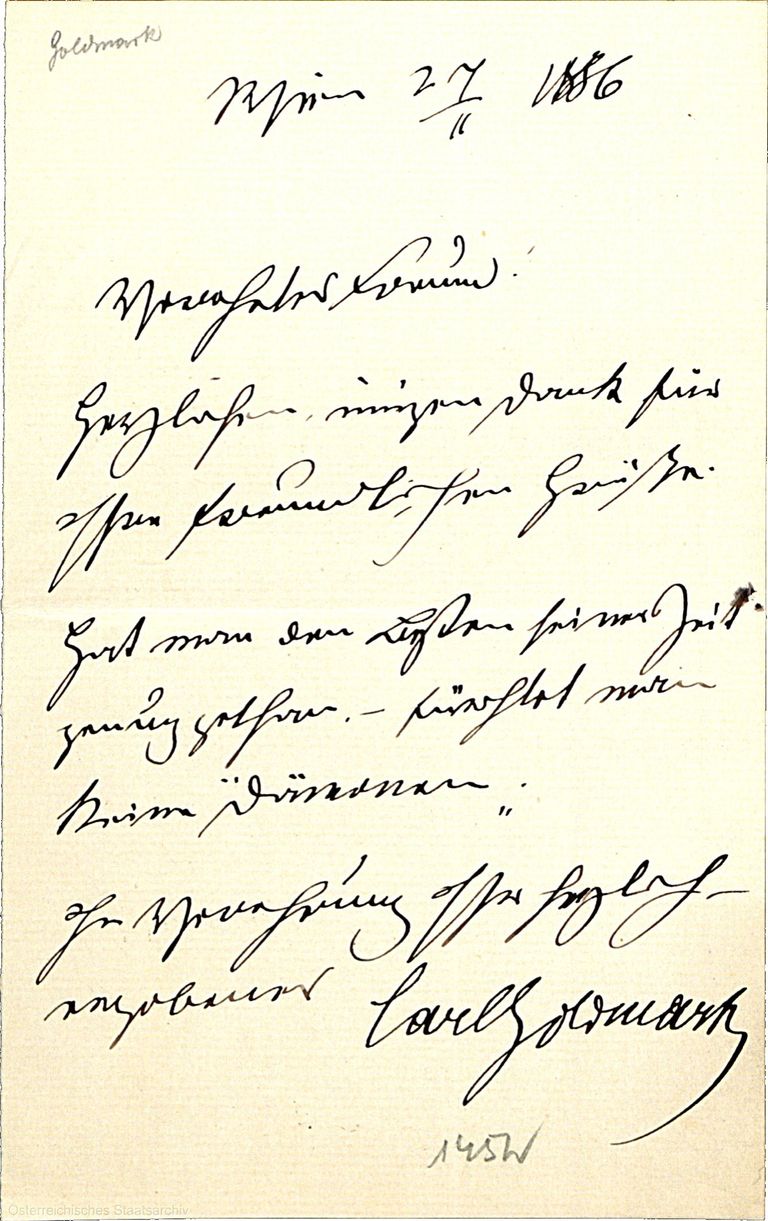 Goldmark
Wien 27/II 1886
Verehrter Freund!
Herzlichen, innigen Dank für
Ihre freundlichen Grüße.
Hat man den Besten seiner Zeit
genug gethan. – fürchtet man
keine "Dämonen".
In Verehrung Ihr herzlich
ergebener Carl Goldmark
145W
Österreichisches Staatsarchiv